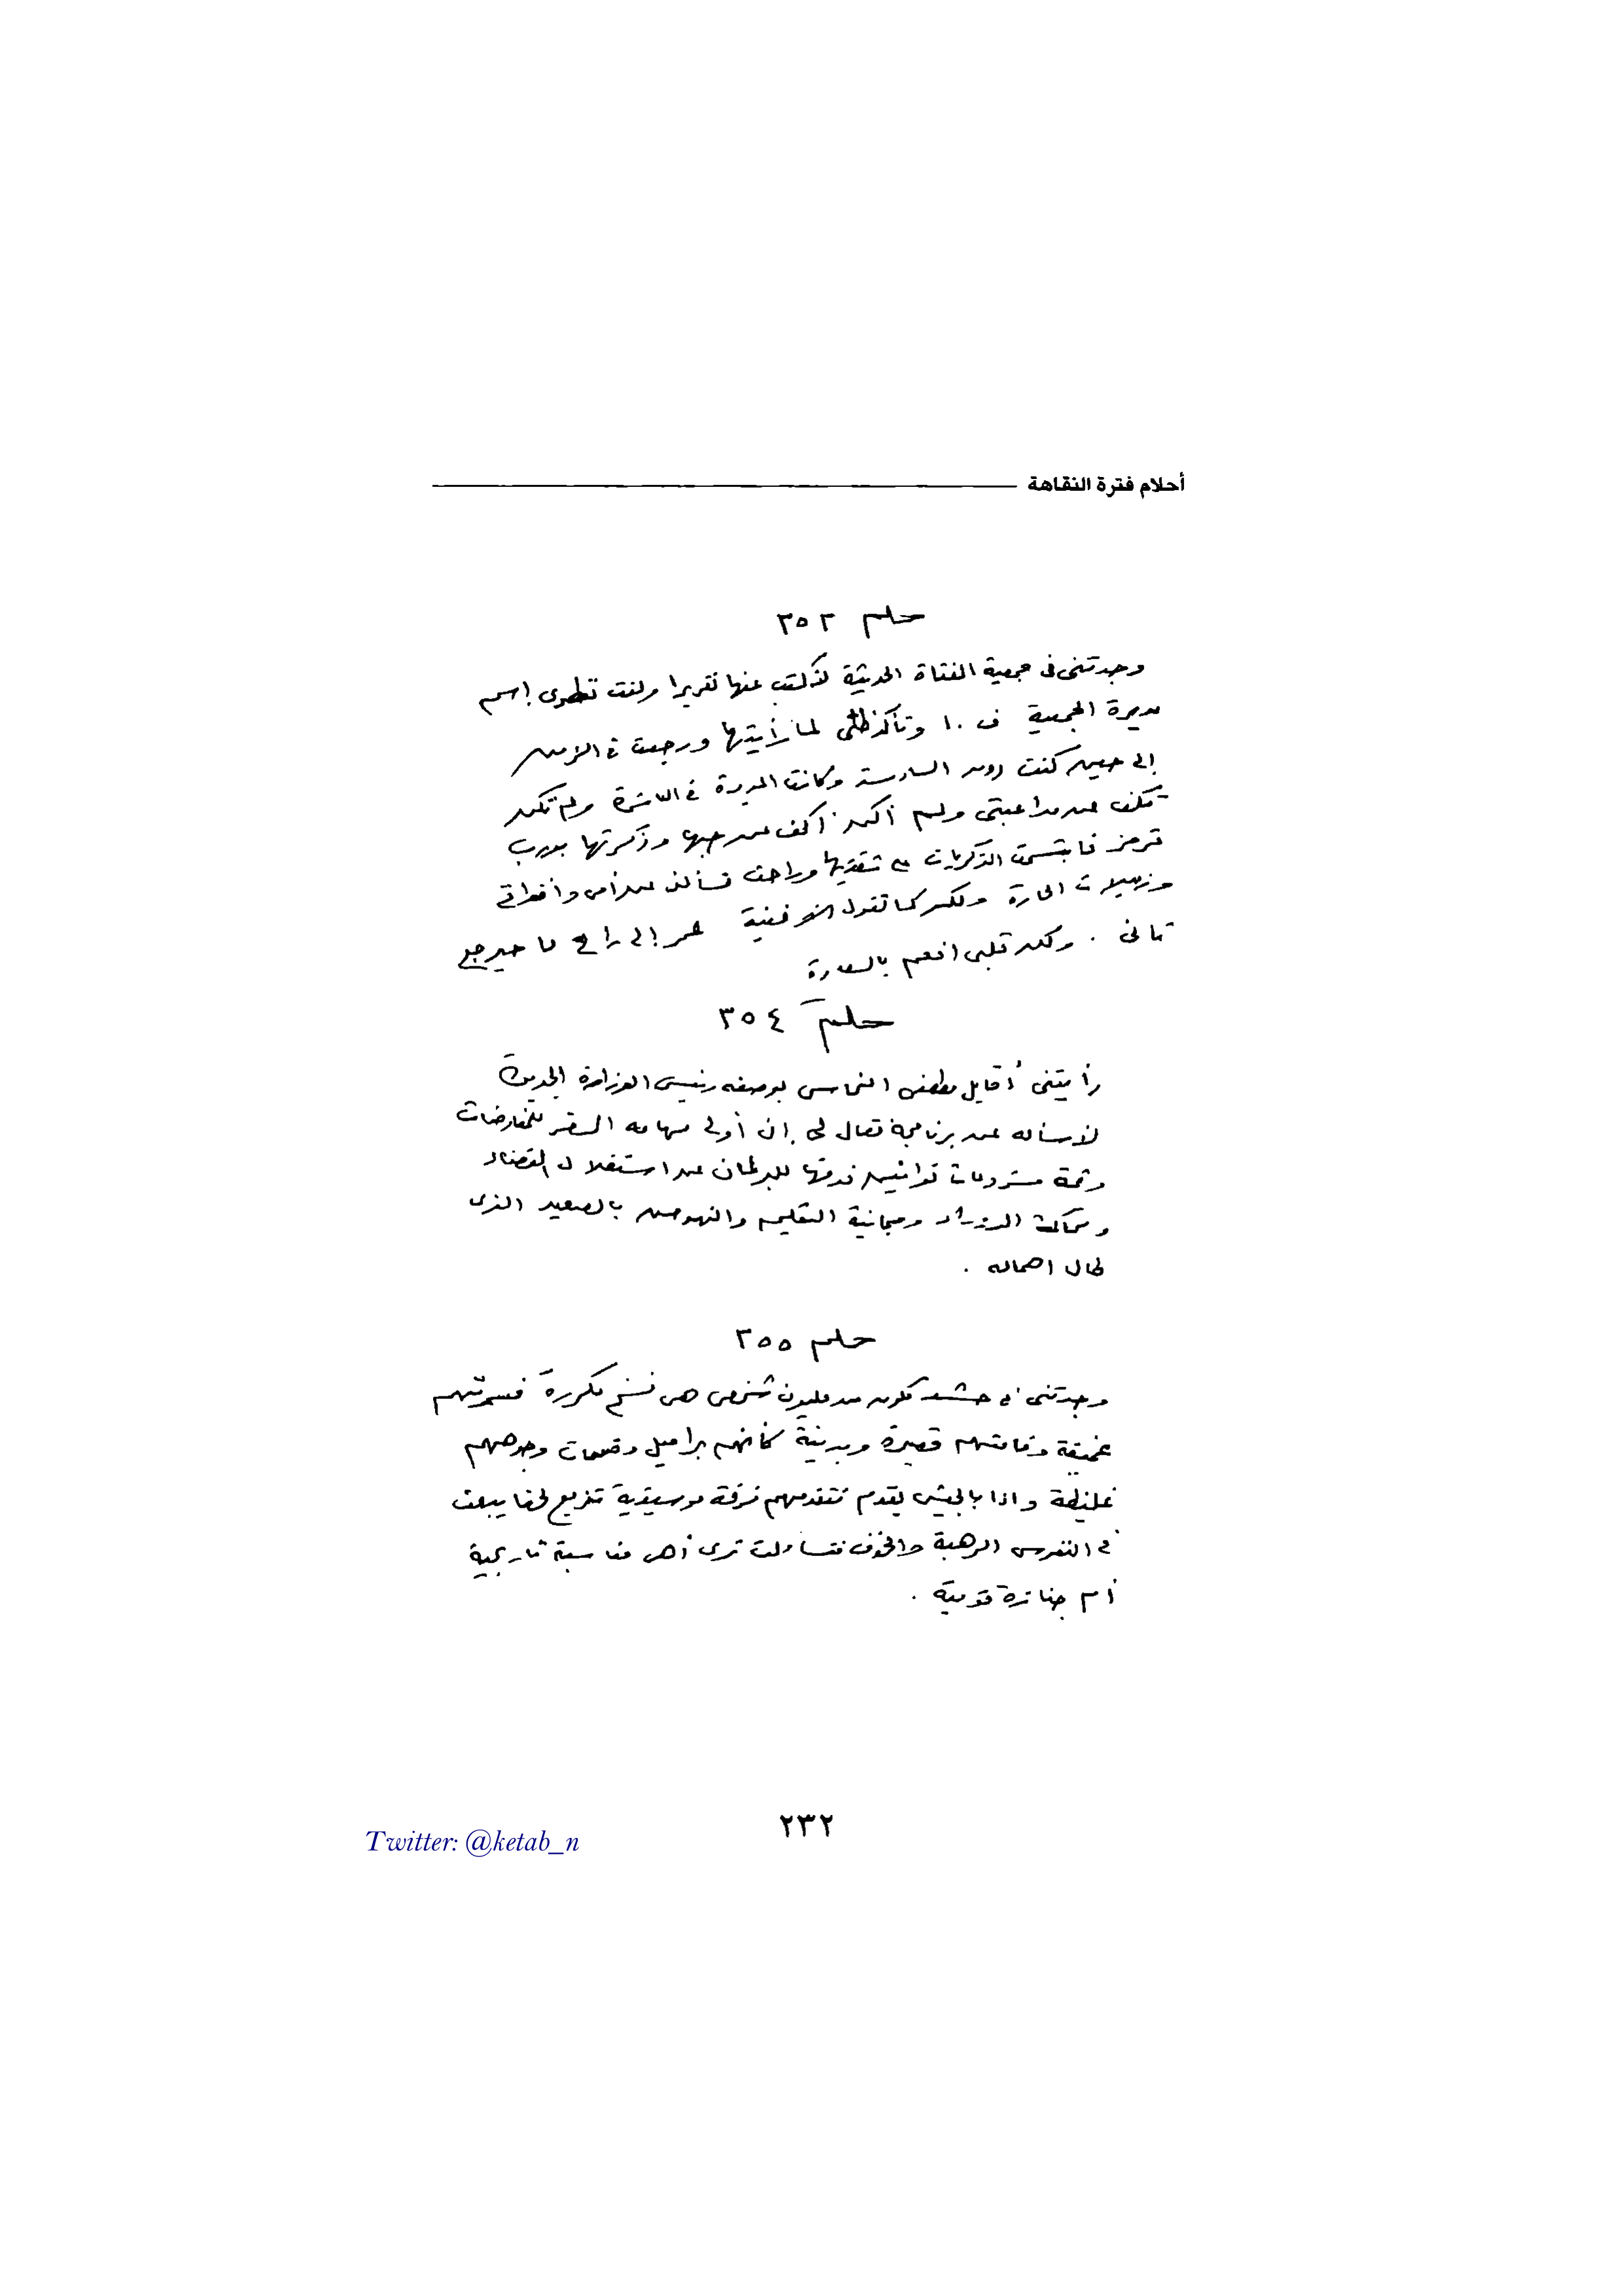 أحلام فترة النقاهة
حلم ٣٥٣
وجدتنى فى جمعية الفتاة الحديثة لأكتب عنها تقريرا ولفت نظرى إسم
مديرة الجمعية ف . ا وتأكد ظنى لما رأيتها ورجعت فى الزمن
إلى حين كنت دون السادسة وكانت المديرة فى العاشرة ولم تكن
تكف عن مداعبتى ولم أكن أكف عن حبها وذكرتها بدرب
قرمز فابتسمت الذكريات على شفتيها وراحت تسأل عن أمى وأخواتى
وزميلات الحارة ولكن كما تقول الأغنية عمر إللى راح ما حيرجع
تانى . ولكن قلبى افعم بالسعادة
حلم ٣٥٤
رأيتنى أقابل مصطفى النحاس بوصفه رئيس الوزارة الجديدة
لأسأله عن برنامجه فقال لى إن أولى مهامه السفر للمفاوضات
وثمة مشروعات قوانين نقدمها للبرلمان عن استقلال القضاء
ومحاكمة الوزراء ومجانية التعليم والنهوض بالصعيد الذى
طال اهماله .
حلم ٣٥٥
وجدتنى فى حشد مكون من مليون شخص هى نسخ مكررة فسمرتهم
عميقة وقامتهم قصيرة وبدينة كأنهم براميل وقسمات وجوههم
غليظة واذا بالجيش يتقدم تتقدمهم فرقة موسيقية تذيع لحنا يبعث
فى النفوس الرهبة والخوف فتساءلت ترى أهى مناسبة تاريخية
أم جنازة قومية .
٢٣٢
Twitter: @ketab_n